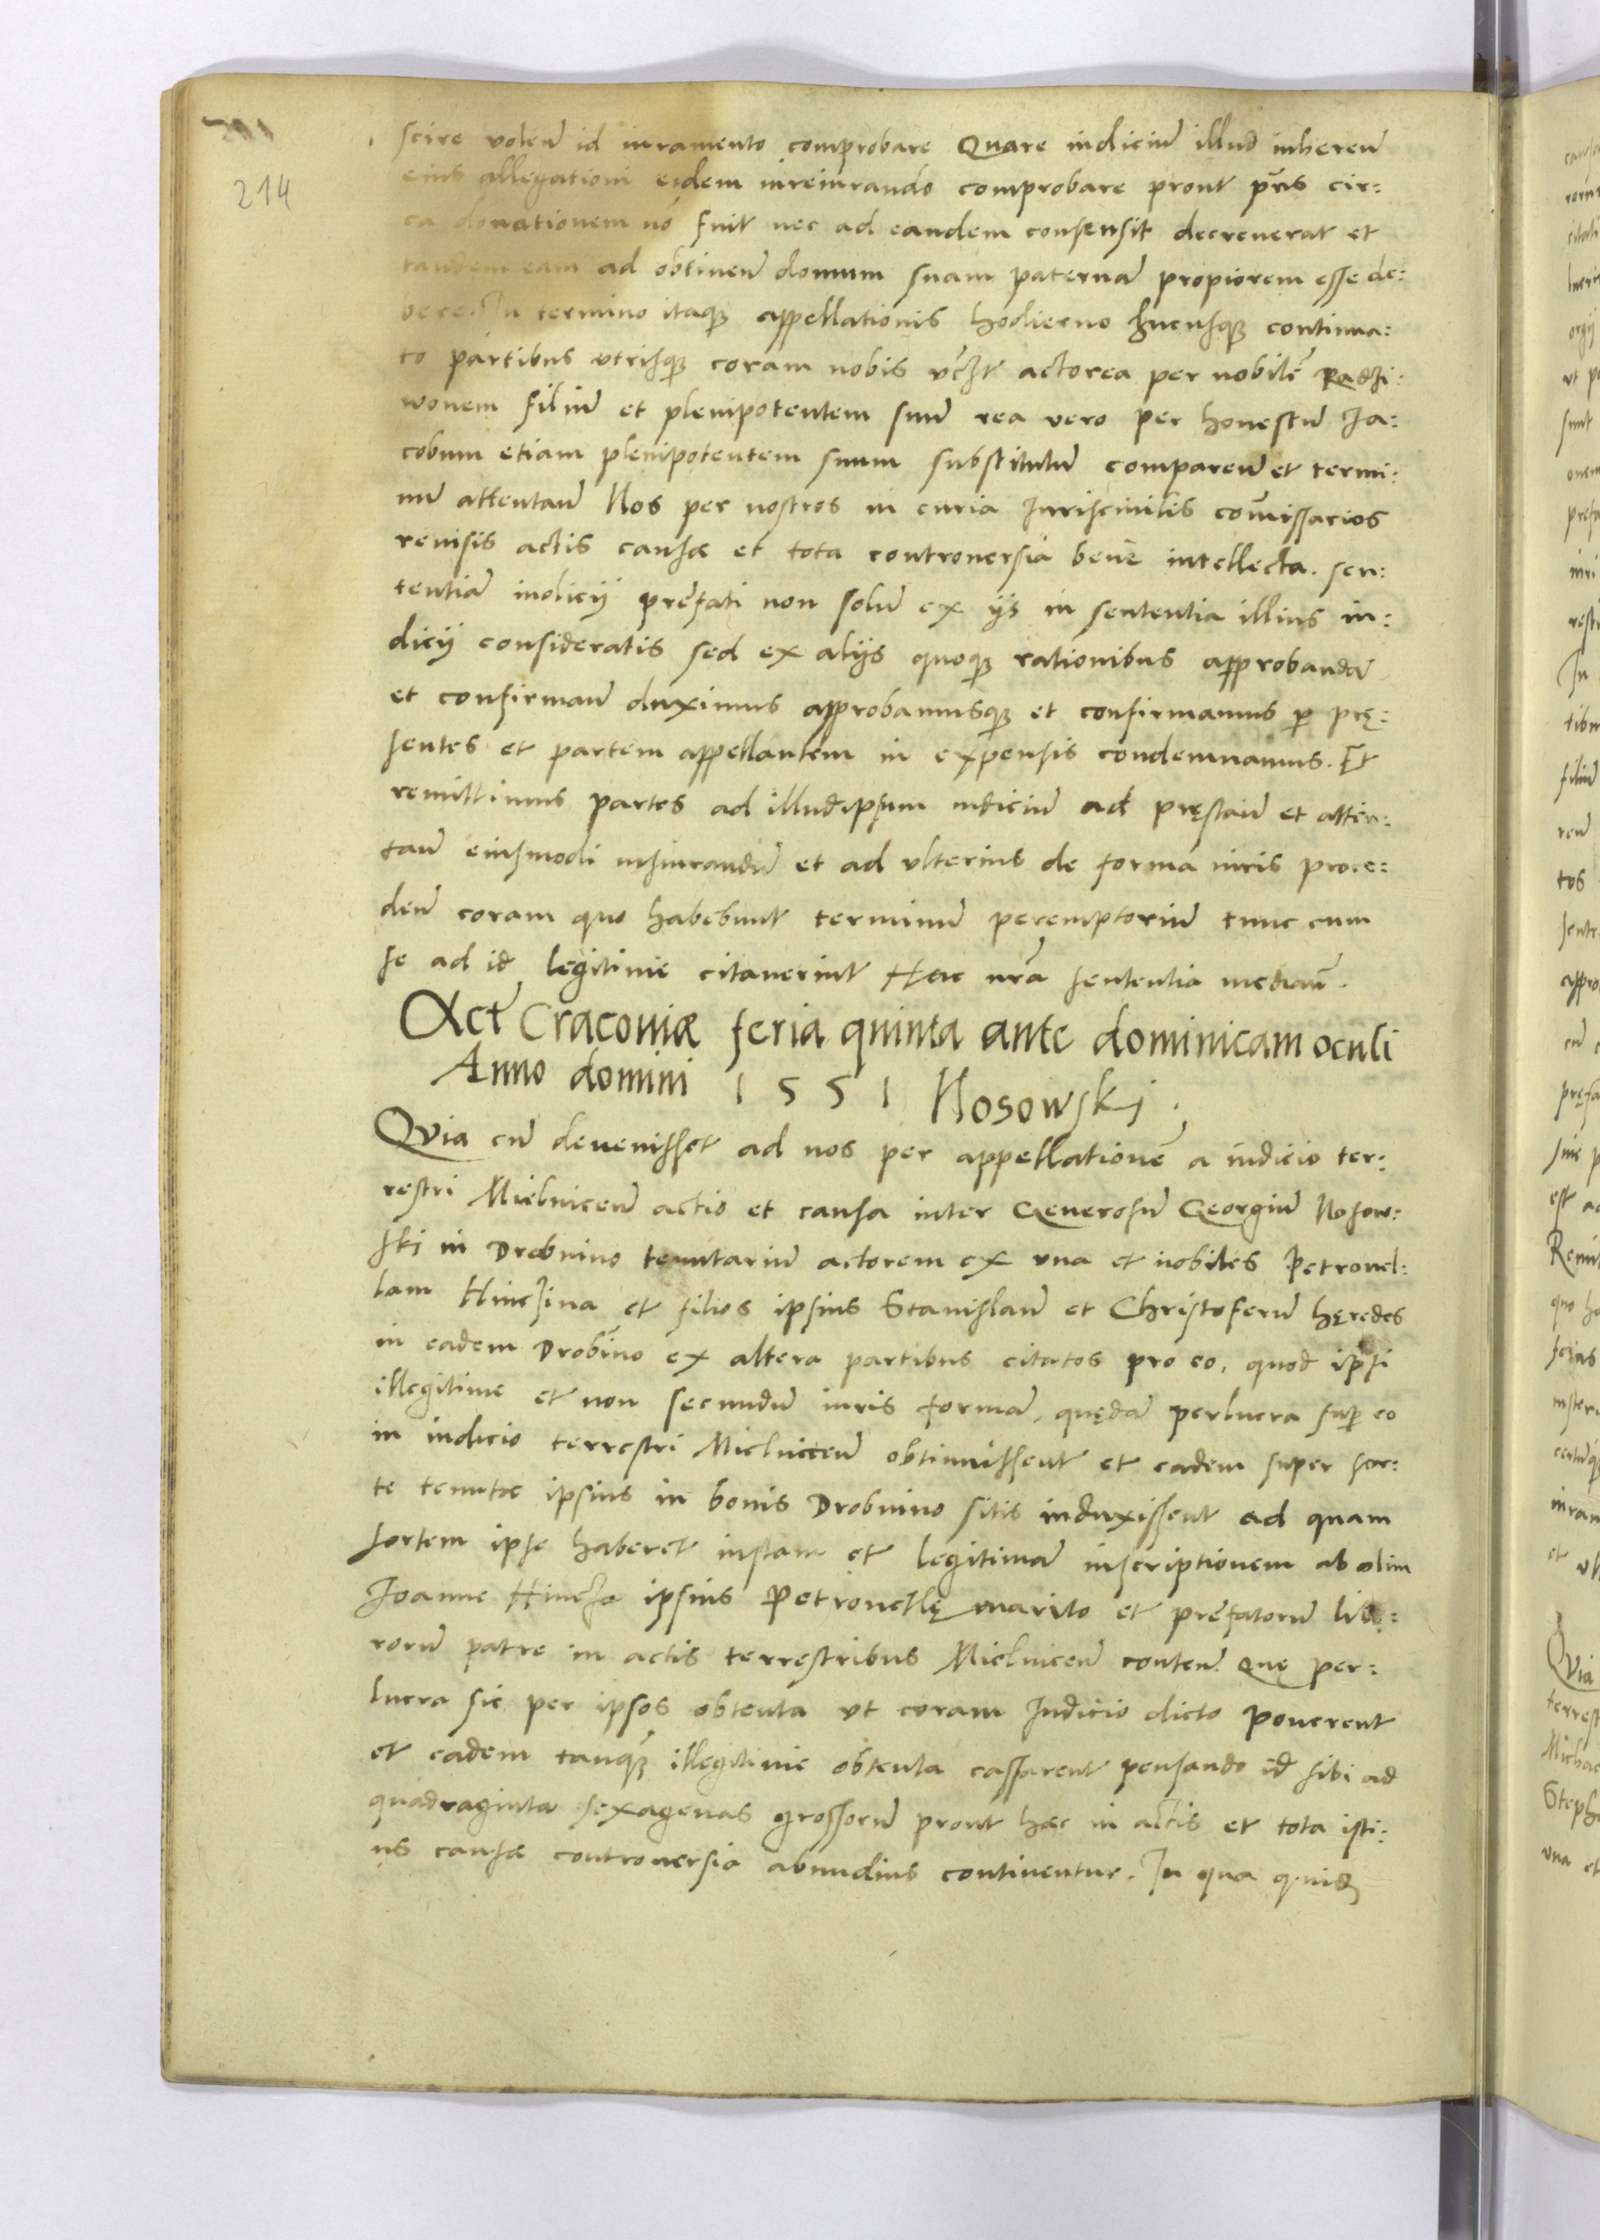 214
scire volen̄ id iuramento comprobare Quare iudiciū illud inheren̄
eius allegationi eidem iureiurando comprobare prout pn̄s cir:
ca donationem nō fuit nec ad eandem consensit decreverat et
tandem eam ad obtinen̄ domum suam paternā propiorem esse de:
bere. In termino itaq̧ appellationis hodierno hucusq̧ continua:
to partibus utrisq̧ coram nobis vc̄ꝫt actorea per nobilē Radzi:
wonem filiū et plenipotentem suū rea vero per honestū Ja:
cobum etiam plenipotentem suum substitutū comparen̄ et termi:
nū attentan̄ Nos per nostros in curia Juriscivilis com̄issarios
revisis actis causæ et tota controversia bene intellecta. sen:
tentiā iudicij prefati non solū ex ijs in sententia illius iu:
dicij consideratis sed ex alijs quoq̧ rationibus approbandā
et confirman̄ duximus approbamusq̧ et confirmamus p prę:
sentes et partem appellantem in expensis condemnamus. Et
remittimus partes ad illudipsum iudiciū ad pręstan̄ et atten:
tan̄ eiusmodi iusiurandū et ad ulterius de forma iuris proce:
den̄ coram quo habebunt terminū peremptoriū tunc cum
se ad id legitime citaverint Hac nrā sententia median̄.
Act̄ Cracoviæ feria quinta ante dominicam oculi
Anno domini 1551 Nosowski.
Quia cū devenisset ad nos per appellationē a iudicio ter:
restri Mielnicen̄ actio et causa inter Generosū Georgiū Nosow:
ski in Drobnino tenutariū actorem ex una et nobiles Petronel:
lam Hinczina et filios ipsius Stanislaū et Christoferū hęredes
in eadem Drobnino ex altera partibus citatos pro eo, quod ipsi
illegitime et non secundū iuris formā, quędā perlucra sup eo
in iudicio terrestri Mielnicen̄ obtinuissent et eadem super sor:
te tenutæ ipsius in bonis Drobnino sitis induxissent ad quam
sortem ipse haberet iustam et legitimā inscriptionem ab olim
Joanne Hincza ipsius Petronellę marito et prefatorū libe:
rorū patre in actis terrestribus Mielnicen̄ conten̄ Quę per:
lucra sic per ipsos obtenta ut coram Judicio dicto ponerent
et eadem tanq̧ illegitime obtenta cassarent pensando id sibi ad
quadraginta sexagenas grossorū prout hæc in actis et tota isti:
us causæ controversia abundius continentur. In qua quidē